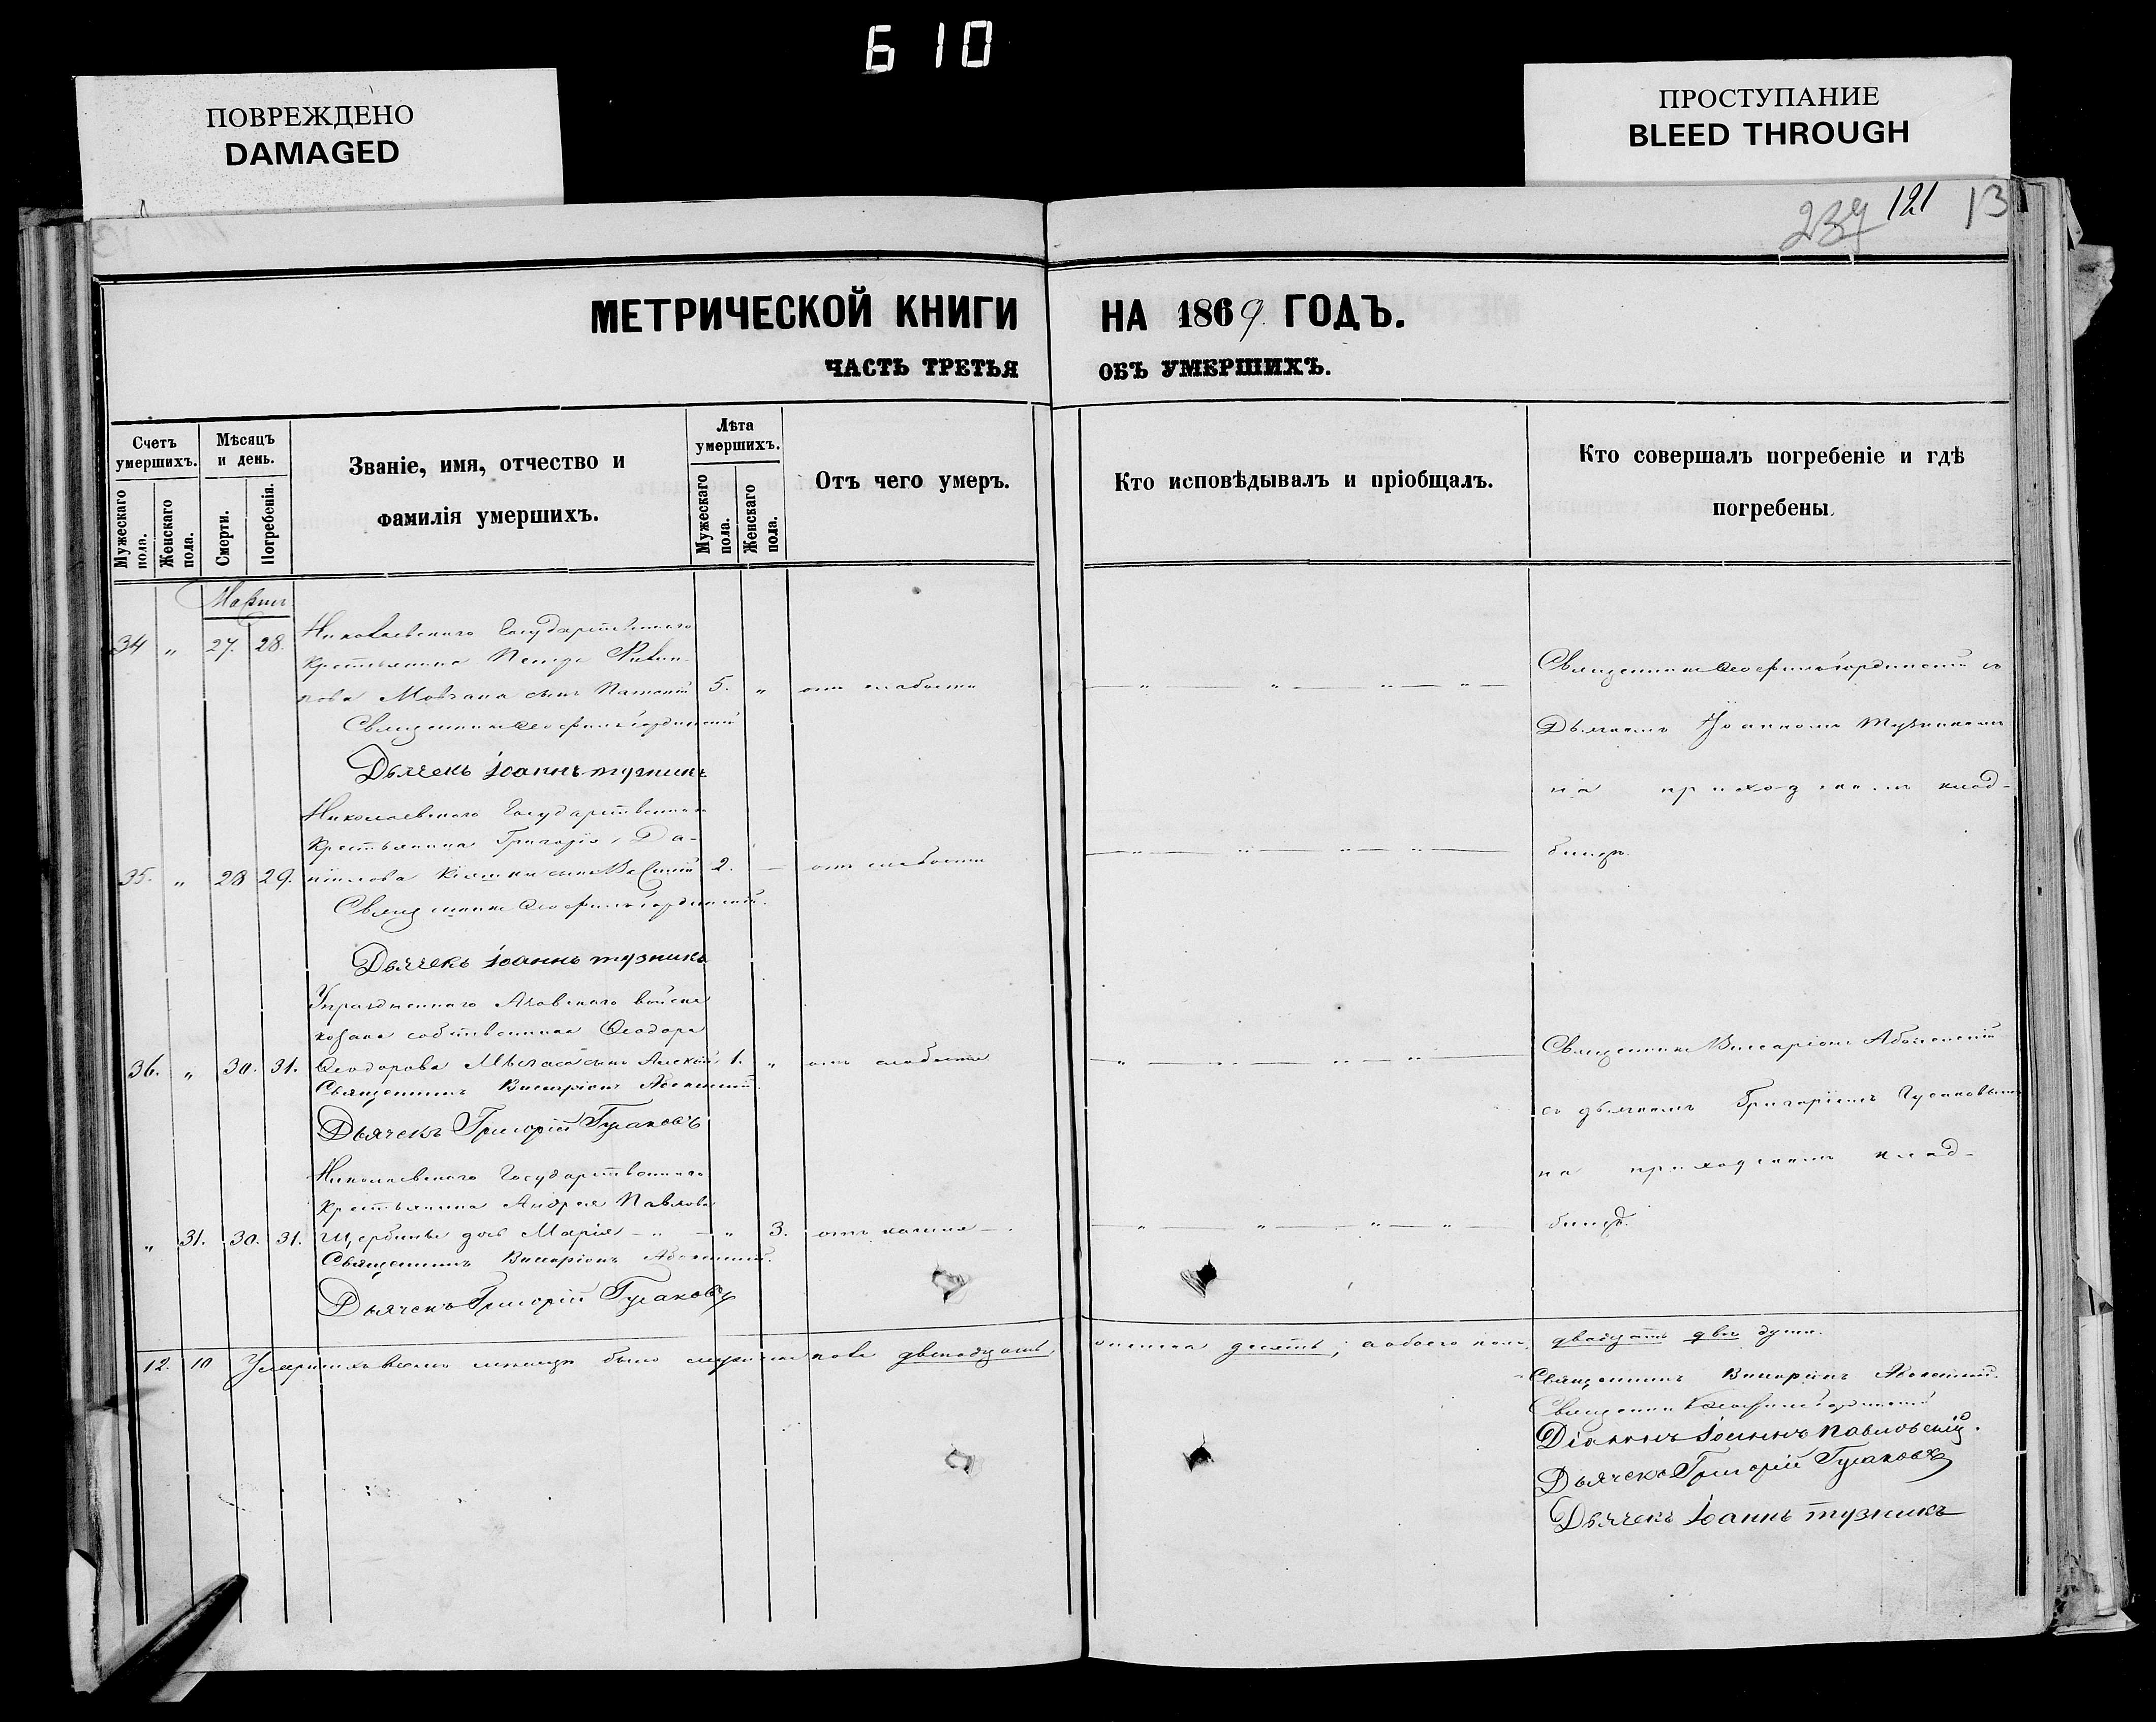 610
ПОВРЕЖДЕНО
DAMAGED
ПРОСТУПАНИЕ
BLEED THROUGH
239 121 13
МЕТРИЧЕСКОЙ КНИГИ НА 1869 ГОДЪ.
ЧАСТЬ ТРЕТЬЯ ОБЪ УМЕРШИХЪ.
Счетъ умершихъ.
Мужескаго пола.
Женскаго пола.
Мѣсяцъ и день.
Смерти.
Погребенія.
Званіе, имя, отчество и
фамилія умершихъ.
Лѣта умершихъ.
Мужескаго пола.
Женскаго пола.
Отъ чего умеръ.
Кто исповѣдывалъ и пріобщалъ.
Кто совершалъ погребеніе и гдѣ
погребены.
Мартъ
34 " 27. 28.
Николаевскаго Государственнаго
крестьянина Петра
сынъ 5. " отъ слабости
Священникъ
Дьячекъ Іоаннъ Тузникъ
Священникъ съ
Дьячкомъ Іоанномъ Тузникомъ
на приходскомъ клад-
бищѣ.
Николаевскаго Государственнаго
крестьянина Григорія Да-
35. " 28 29. ніилова сынъ Василій 2. — отъ слабости
Священникъ
Дьячекъ Іоаннъ Тузникъ
Упраздненнаго Азовскаго войска
козака собственника Ѳеодора
36. " 30. 31. Ѳеодорова сынъ Алексѣй 1. " отъ слабости
Священникъ Виссаріонъ
Дьячекъ Григорій Гусаковъ
Священникъ Виссаріонъ
съ дьячкомъ Григоріемъ Гусаковымъ
на приходскомъ клад-
бищѣ.
Николаевскаго Государственнаго
крестьянина Андрея Павлова
" 31. 30. 31. Щербины дочь Марія " 3. отъ кашля
Священникъ Виссаріонъ
Дьячекъ Григорій Гусаковъ
12. 10 Умершихъ въ семъ мѣсяцѣ было мужеска пола двенадцать, женска десять, а обоего пола двадцать двѣ души.
Священникъ Виссаріонъ
Священникъ
Діаконъ Іоаннъ Павловскій.
Дьячекъ Григорій Гусаковъ
Дьячекъ Іоаннъ Тузникъ